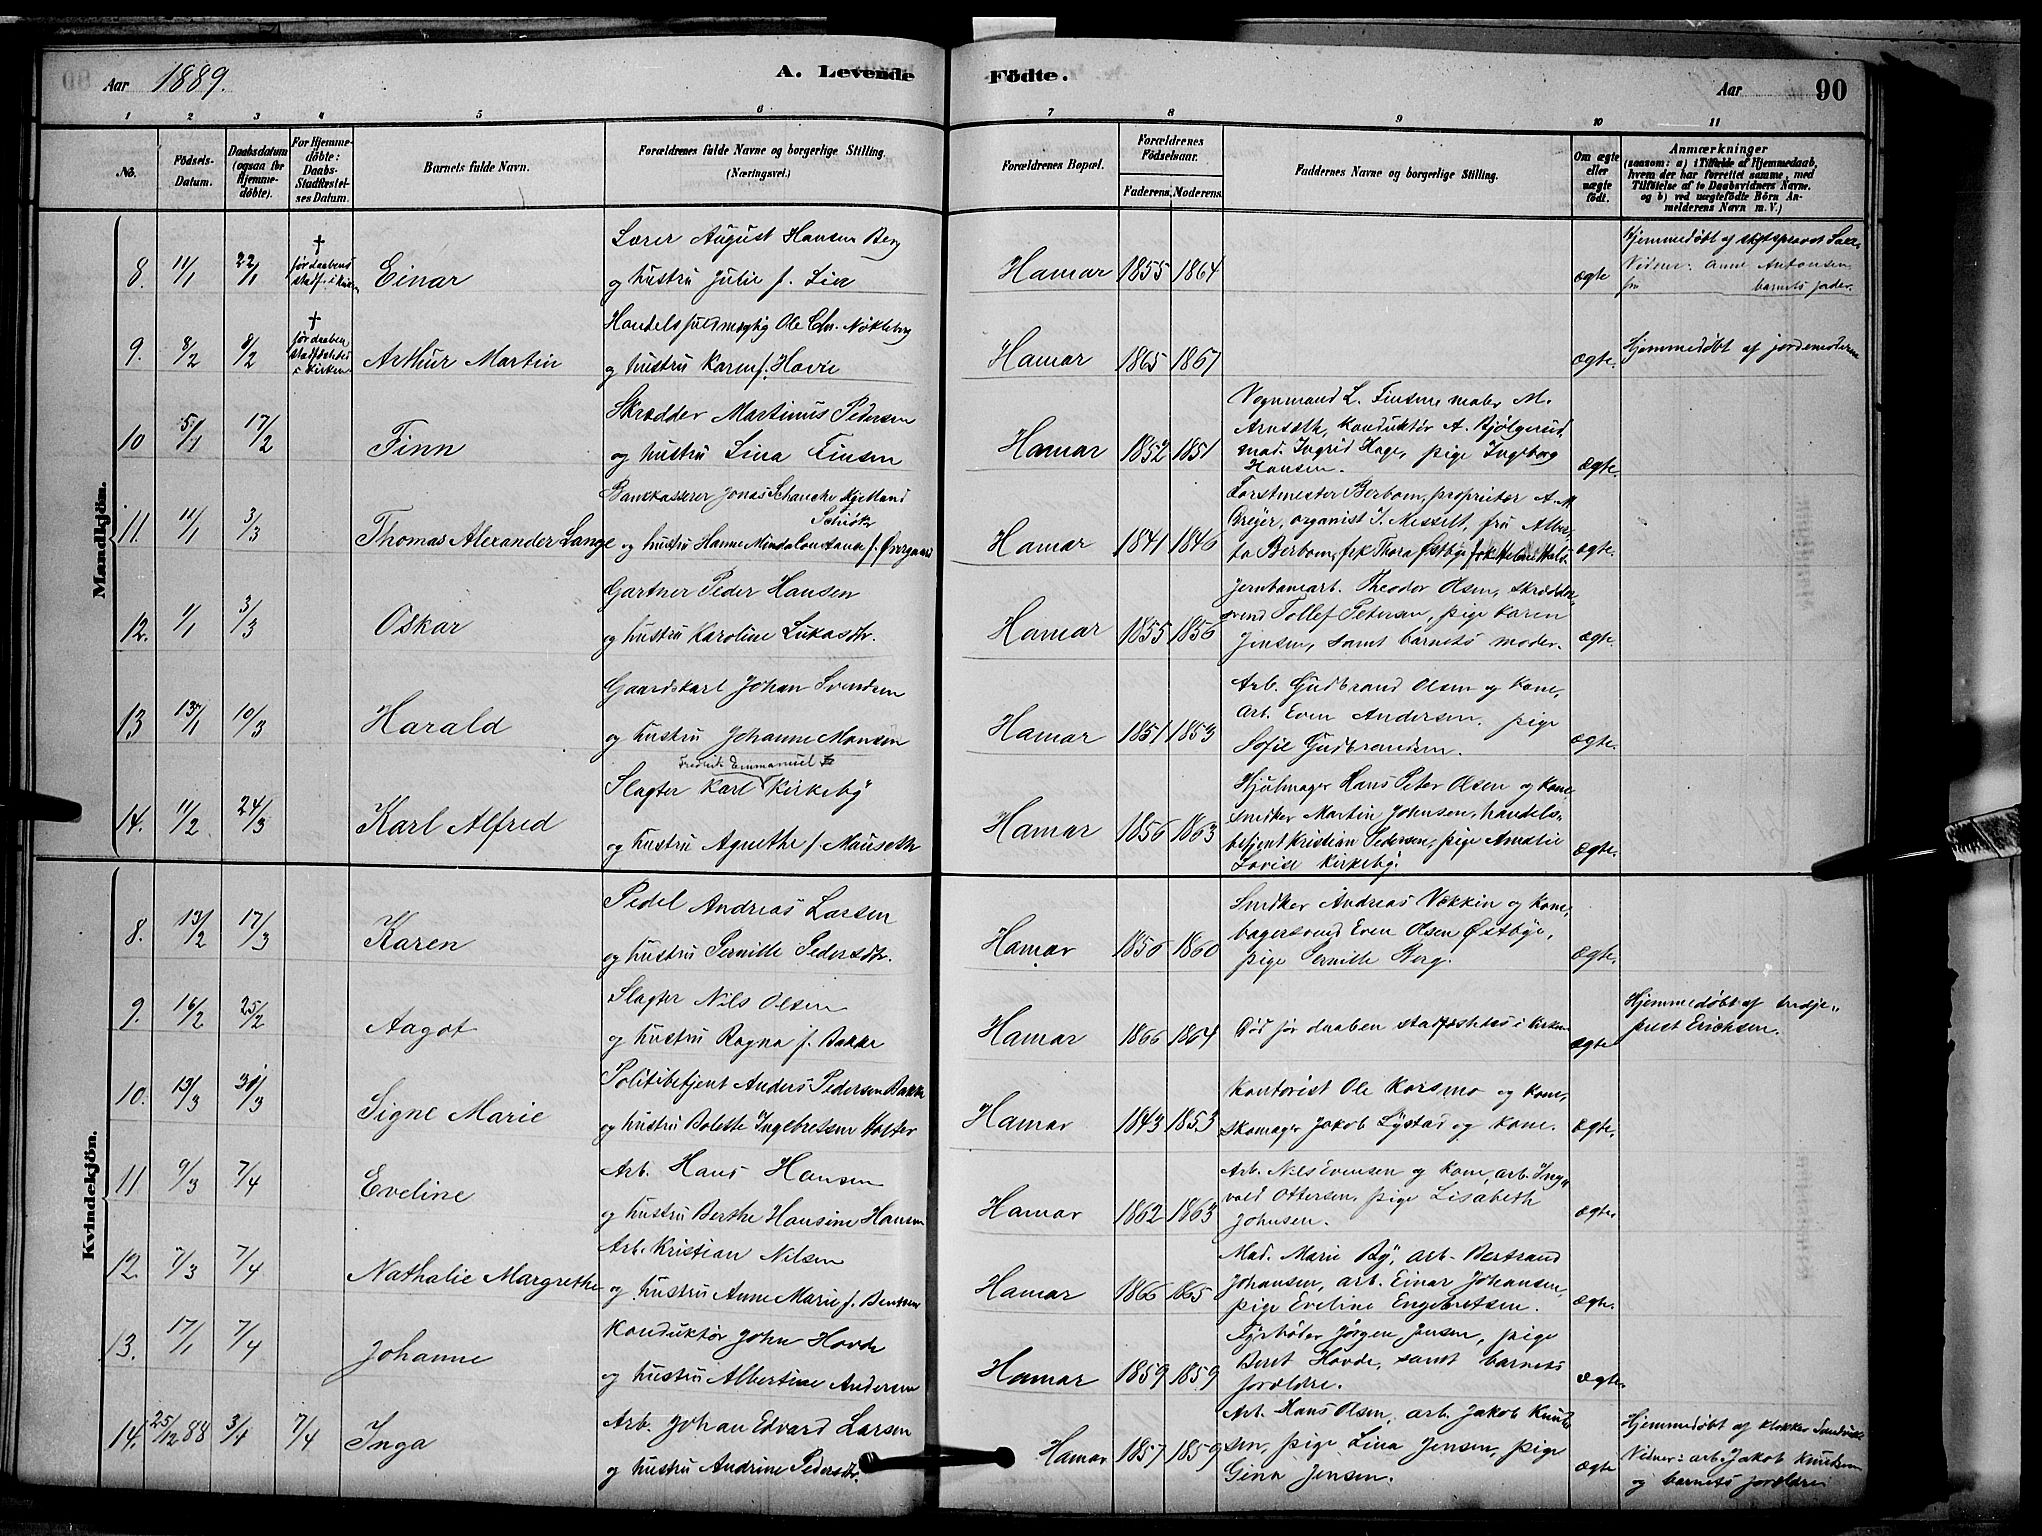 Aar 1889. A. Levende Födte. Aar 90
1 2 3 4 5 6 7 8 9 10 11
No. Födsels-Datum. Daabsdatum (ogsaa for Hjemmedöbte). For Hjemmedöbte: Daabs-Stadfæstelses Datum. Barnets fulde Navn. Forældrenes fulde Navne og borgerlige Stilling. (Næringsvei.) Forældrenes Bopæl. Forældrenes Födselsaar. Faderens. Moderens. Faddernes Navne og borgerlige Stilling. Om ægte eller uægte födt. Anmærkninger (saasom: a) i Tilfælde af Hjemmedaab, hvem der har forrettet samme, med Tilföielse af to Daabsvidners Navne. og b) ved uægtefödte Börn Anmelderens Navn m. V.)
Mandkjön.
8. 11/1 22/1 † før daabens stadf. i kirken Einar
Lærer August Hansen Berg
og hustru Julie f. Lie
Hamar 1855 1864 ægte
Hjemmedøbt af
Vidner: Anne Antonsen
barnets fader.
9. 8/2 8/2 † før daaben stadfæstedes i kirken Arthur Martin
Handelsfuldmægtig Ole Chr. Nøkleberg
og hustru Karen f. Hovie
Hamar 1865 1867 ægte.
Hjemmedøbt af jordemoderen
10 5/1 17/2 Finn
Skrædder Martinus Pedersen
og hustru Lina Finsen
Hamar 1852 1851
Vognmand L. Finsen, maler M.
Arneseth, konduktør A. Bjølgerud,
mad. Ingrid Hage, pige Ingeborg
Hansen.
ægte.
11. 11/1 3/3 Thomas Alexander Lange
Bankkasserer Jonas Schanche Kjelland
Schiøtz
og hustru Hanne Minda Constance f. Övergaard
Hamar 1841 1846
Forstmester Berbom, proprietær A. M
Greger, organist I. Messelt, fru Alber-
ta Berbom, frk Thora Østbye, frk
ægte.
12. 1/1 3/3 Oskar
Gartner Peder Hansen
og hustru Karoline Lukasdtr.
Hamar 1855 1856
Jernbanearb. Theodor Olsen, skrædder-
svend Tollef Petersen, pige Karen
Jensen, samt barnets moder.
ægte.
13 13/1 10/3 Harald
Gaardskarl Johan Svendsen
og hustru Johanne Monsen
Hamar 1851 1853
Arb. Gudbrand Olsen og kone,
arb. Even Andersen, pige
Sofie Gudbrandsen.
ægte.
14. 11/2 24/3 Karl Alfred
Fredrik Emmanuel
Slagter Karl Kirkeby
og hustru Agnethe f. Mauseth
Hamar 1856 1863
Hjulmager Hans Peter Olsen og kone,
snedker Martin Johnsen, handels-
betjent Kristian Pedersen, pige Amalie
Lovise Kirkeby.
ægte.
Kvindekjön.
8. 13/2 17/3 Karen
Pedel Andreas Larsen
og hustru Pernille Pedersdtr.
Hamar 1856 1860
Snedker Andreas Vekkin og kone,
bagersvend Even Olsen Østbye,
pige Pernille Berg.
ægte.
9. 16/2 25/2 Aagot
Slagter Nils Olsen
og hustru Ragna f. Bakke
Hamar 1866 1864
Död før daaben stadfæstedes i kirken
ægte
Hjemmedøbt af tredje-
prest Erichsen.
10. 13/3 31/3 Signe Marie
Politibetjent Anders Pedersen Bakke
og hustru Bolette Ingebretsen Holter
Hamar 1843 1853
Kontorist Ole Korsmo og kone,
skomager Jakob Lystad og kone.
ægte.
11 9/3 7/4 Eveline
Arb. Hans Hansen
og hustru Berthe Hansine Hansen
Hamar 1862 1863
Arb. Nils Evensen og kone, arb. Ing-
vald Ottersen, pige Lisabeth
Johnsen.
ægte
12. 7/3 7/4 Nathalie Margrethe
Arb. Kristian Nilsen
og hustru Anne Marie f. Bentsen
Hamar 1866 1865
Mad. Marie By, arb. Bertrand
Johansen, arb. Einar Johansen,
pige Eveline Engebretsen.
ægte.
13. 17/1 7/4 Johanne
Konduktør John Hovde
og hustru Albertine Andersen
Hamar 1859 1859
Fyrbøder Jørgen Jensen, pige
Beret Hovde, samt barnets
forældre.
ægte.
14. 25/12 88 3/4 7/4 Inga
Arb. Johan Edvard Larsen
og hustru Andrine Pedersdtr.
Hamar 1857 1859
Arb. Hans Olsen, arb. Jakob Knud-
sen, pige Lina Jensen, pige
Gina Jensen.
ægte
Hjemmedøbt af klokker Sandvik
Vidner: arb. Jakob Knudsen
og barnets forældre